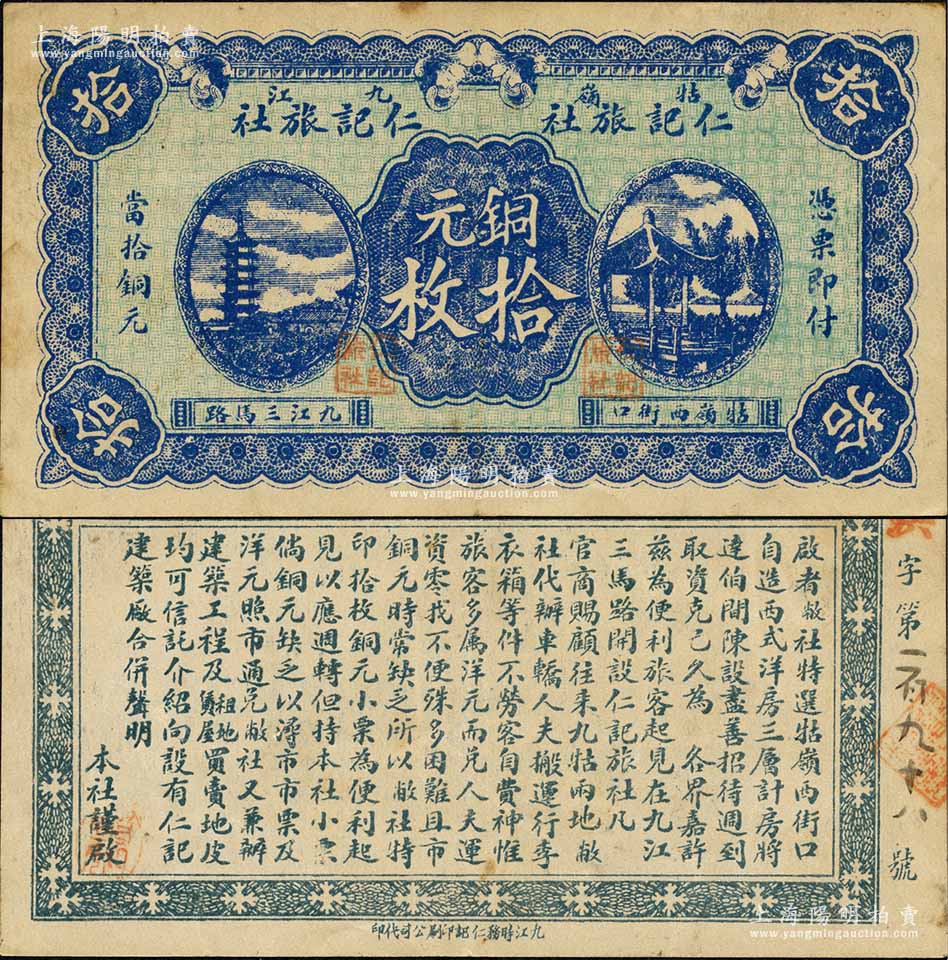 上海陽明拍賣
www.yangmingauction.com
拾
拾
牯嶺
仁記旅社
九江
仁記旅社
憑票即付
銅元
拾枚
當拾銅元
仁記旅社
仁記旅社
牯嶺西街口
九江三馬路
拾
拾
上海陽明拍賣
www.yangmingauction.com
字第
九十八
號
啟者敝社特選牯嶺西街口
自造西式洋房三層計房將
達伯間陳設盡善招待週到
取資克己久為 各界嘉許
茲為便利旅客起見在九江
三馬路開設仁記旅社凡
官商賜顧往來九牯兩地敝
社代辦車轎人夫搬運行李
衣箱等件不勞客自費神惟
旅客多屬洋元而兌人夫運
資零找不便殊多困難且市
銅元時常缺乏所以敝社特
印拾枚銅元小票為便利起
見以應週轉但持本社小票
倘銅元缺乏以潯市市票及
洋元照市通兌敝社又兼辦
建築工程及租地賃屋買賣地皮
均可信託介紹向設有仁記
建築廠合併聲明
本社謹啟
九江時務仁記印刷公司代印
上海陽明拍賣
www.yangmingauction.com